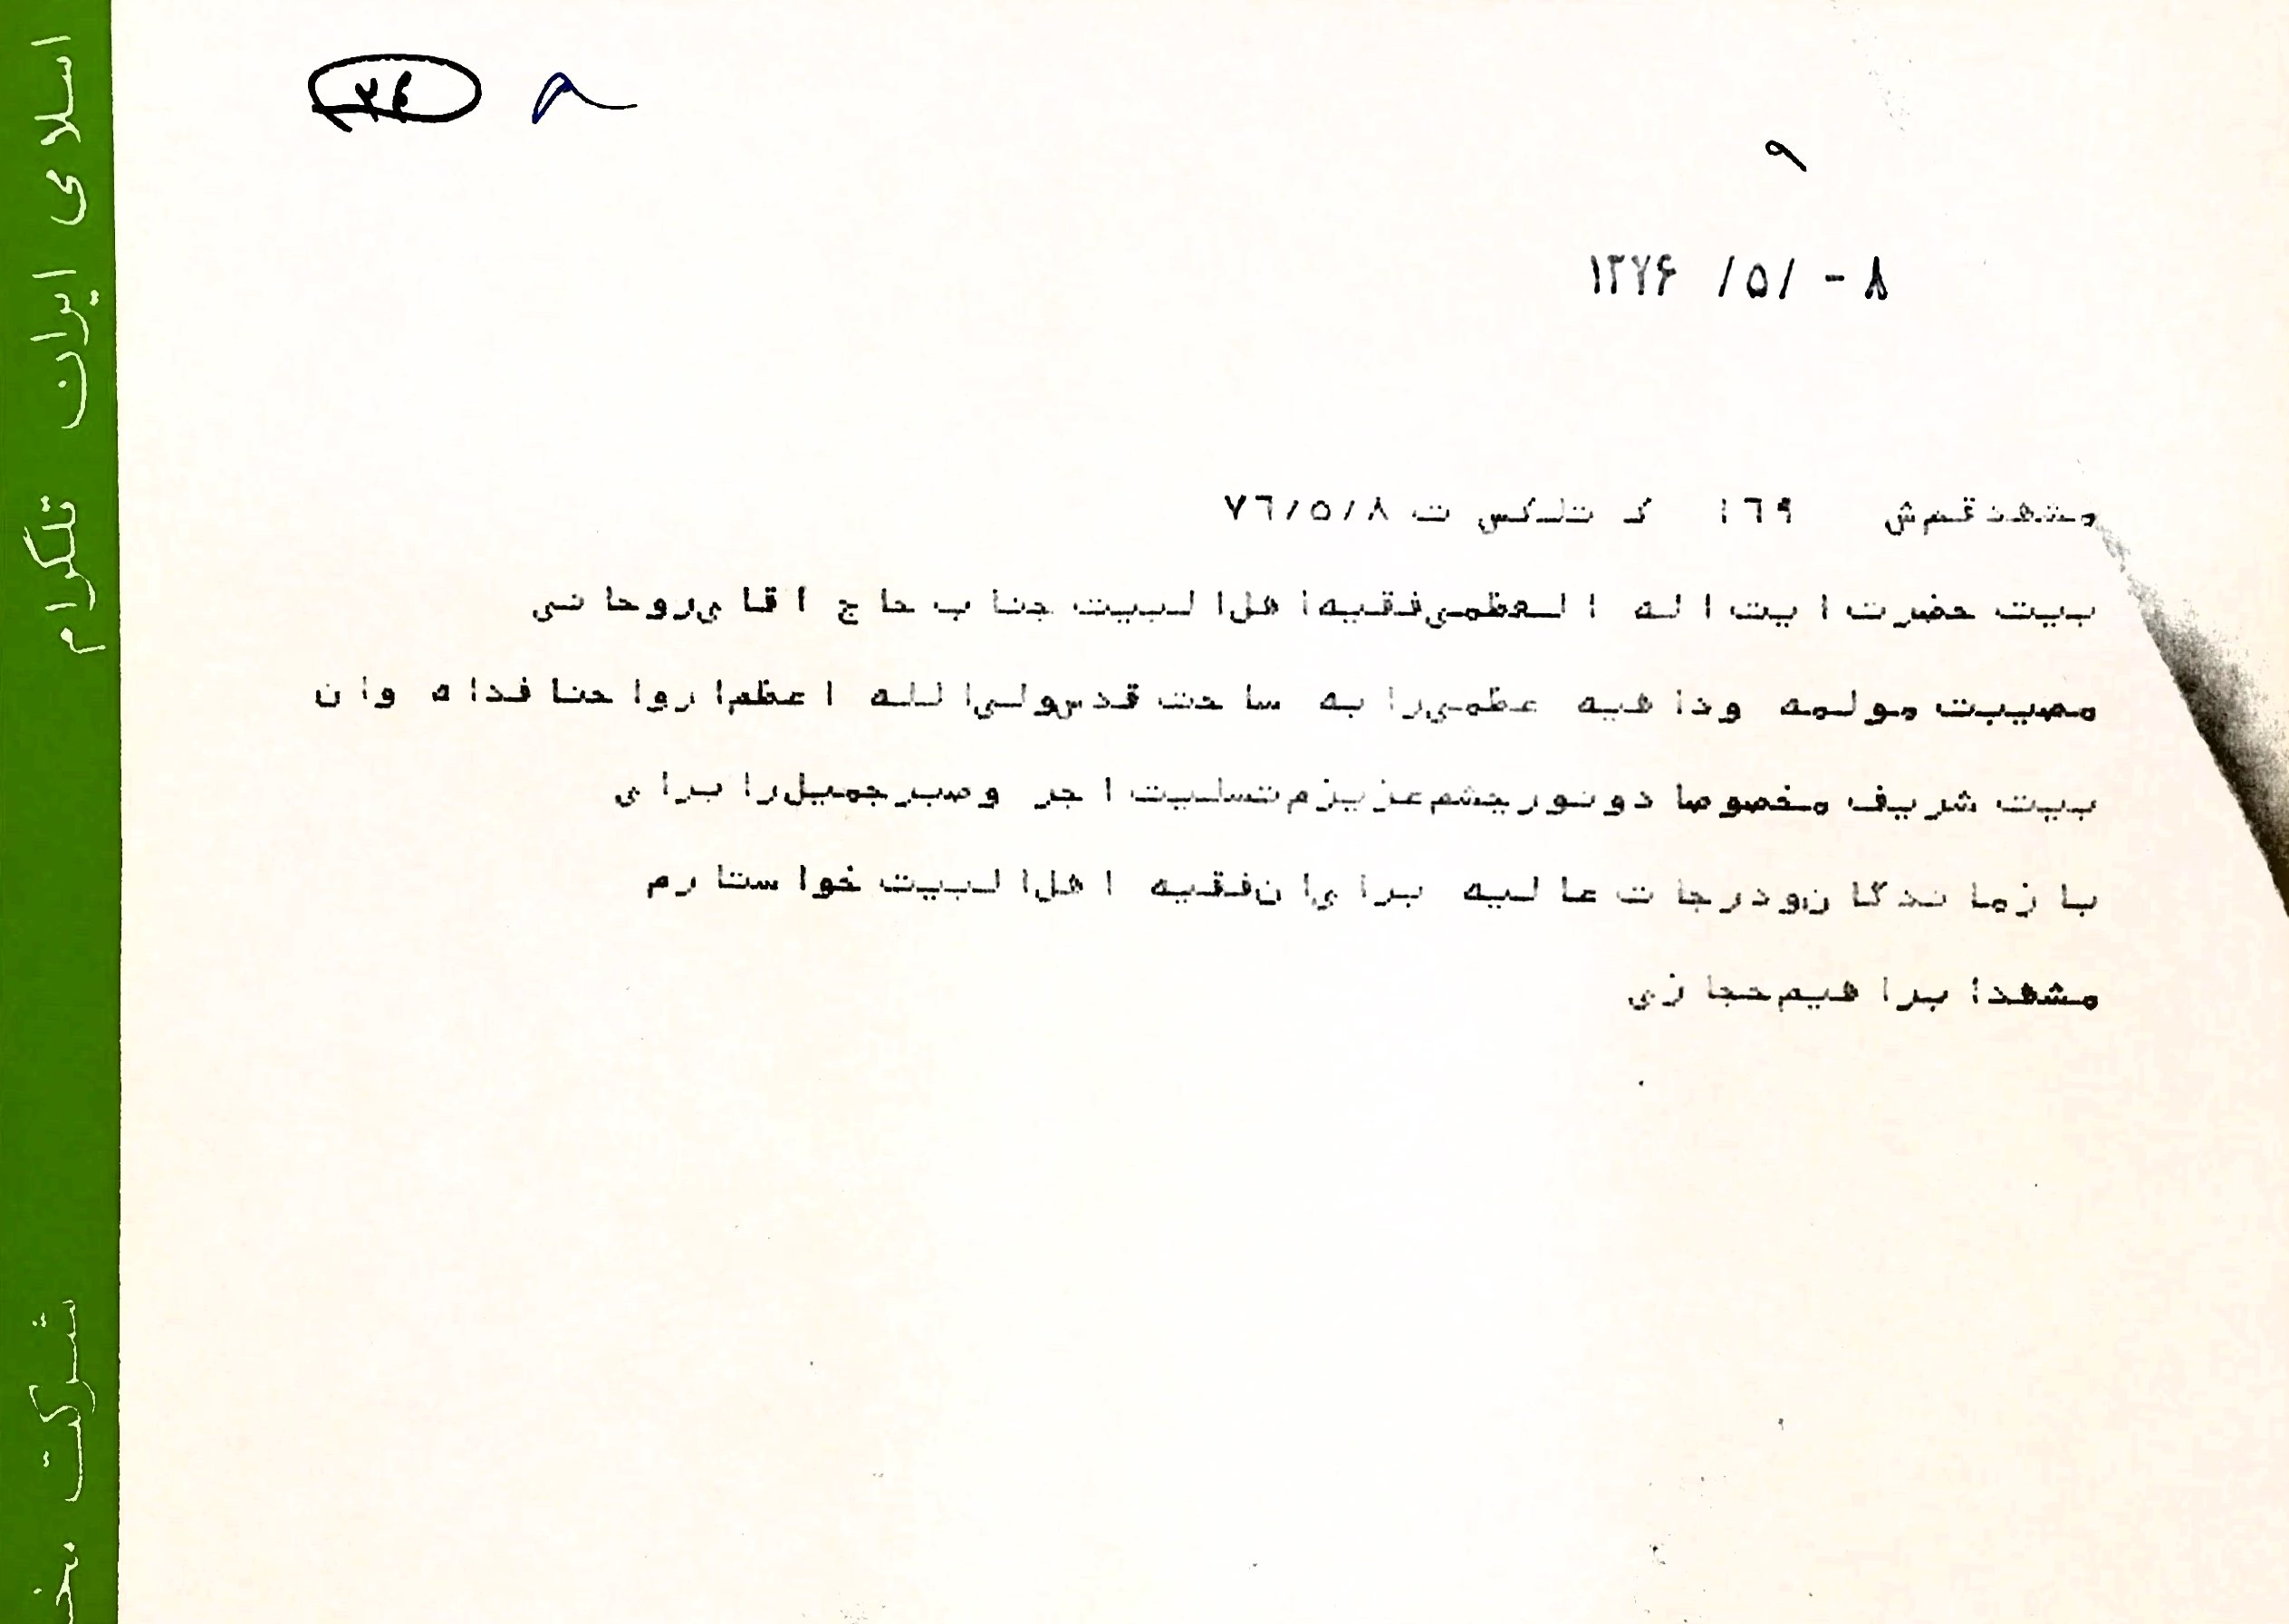 ۲۶
۹
۸ - /۵/ ۱۳۷۶
مشهد قم ش ۱۶۹ ک تلکس ت ۷۶/۵/۸
بیت حضرت ایت اله العظمی فقیه اهل البیت جناب حاج اقای روحانی
مصیبت مولمه وداهیه عظمی را به ساحت قدس ولی الله اعظم ارواحنا فداه وان
بیت شریف مخصوصا دو نور چشم عزیزم تسلیت اجر وصبر جمیل را برای
بازماندگان ودرجات عالیه برای ان فقیه اهل البیت خواستارم
مشهد ابراهیم حجازی
اسلامی ایران تلگرام
شرکت مخ